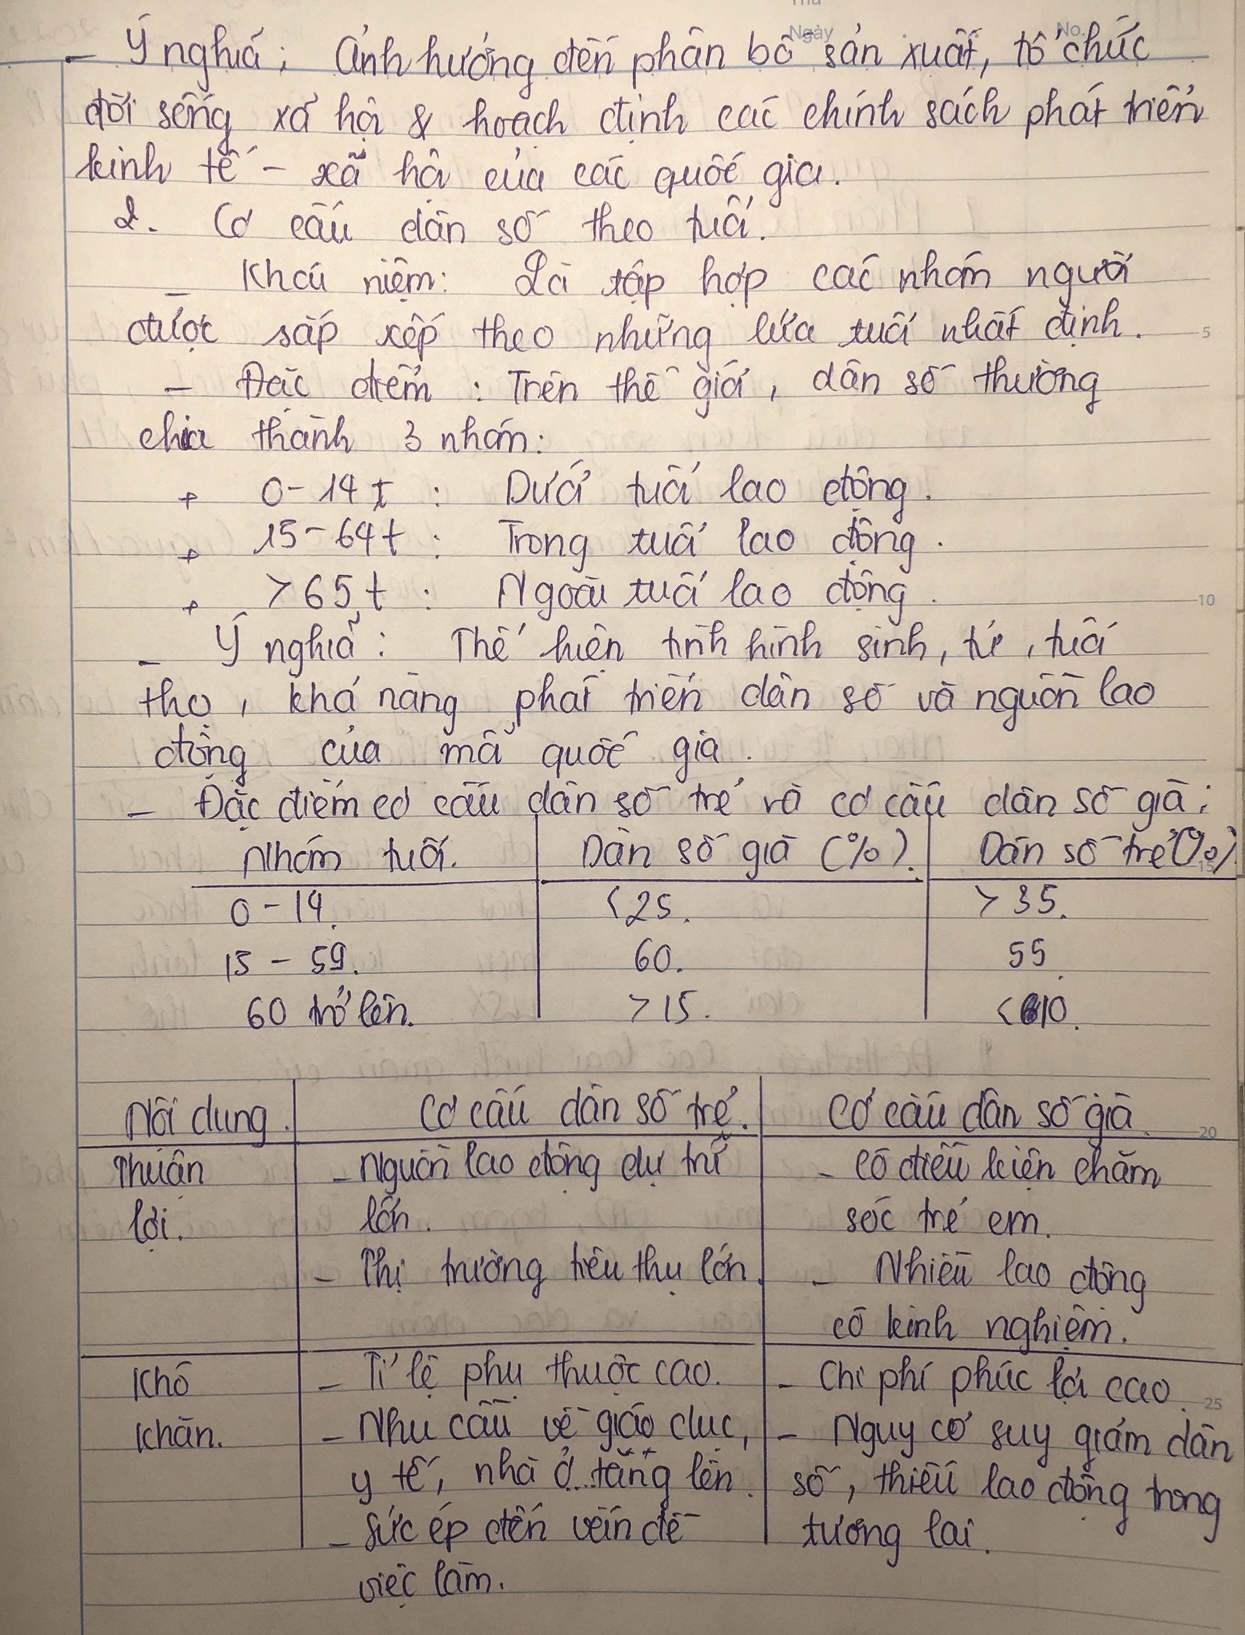 Thứ
Ngày No.
- Ý nghĩa: Ảnh hưởng đến phân bố sản xuất, tổ chức
đời sống xã hội & hoạch định các chính sách phát triển
kinh tế - xã hội của các quốc gia.
2. Cơ cấu dân số theo tuổi.
- Khái niệm: Là tập hợp các nhóm người
được sắp xếp theo những lứa tuổi nhất định. 5
- Đặc điểm: Trên thế giới, dân số thường
chia thành 3 nhóm:
+ 0-14t: Dưới tuổi lao động.
+ 15-64t: Trong tuổi lao động.
+ >65t: Ngoài tuổi lao động. 10
- Ý nghĩa: Thể hiện tình hình sinh, tử, tuổi
thọ, khả năng phát triển dân số và nguồn lao
động của mỗi quốc gia.
- Đặc điểm cơ cấu dân số trẻ và cơ cấu dân số già:
Nhóm tuổi. Dân số già (%). Dân số trẻ (%)
0-14. <25. >35.
15-59. 60. 55.
60 trở lên. >15. <10.
Nội dung. Cơ cấu dân số trẻ. Cơ cấu dân số già. 20
Thuận - Nguồn lao động dự trữ - Có điều kiện chăm
lợi. lớn. sóc trẻ em.
- Thị trường tiêu thụ lớn. - Nhiều lao động
có kinh nghiệm.
Khó - Tỉ lệ phụ thuộc cao. - Chi phí phúc lợi cao. 25
khăn. - Nhu cầu về giáo dục, - Nguy cơ suy giảm dân
y tế, nhà ở tăng lên. số, thiếu lao động trong
- Sức ép đến vấn đề tương lai.
việc làm.